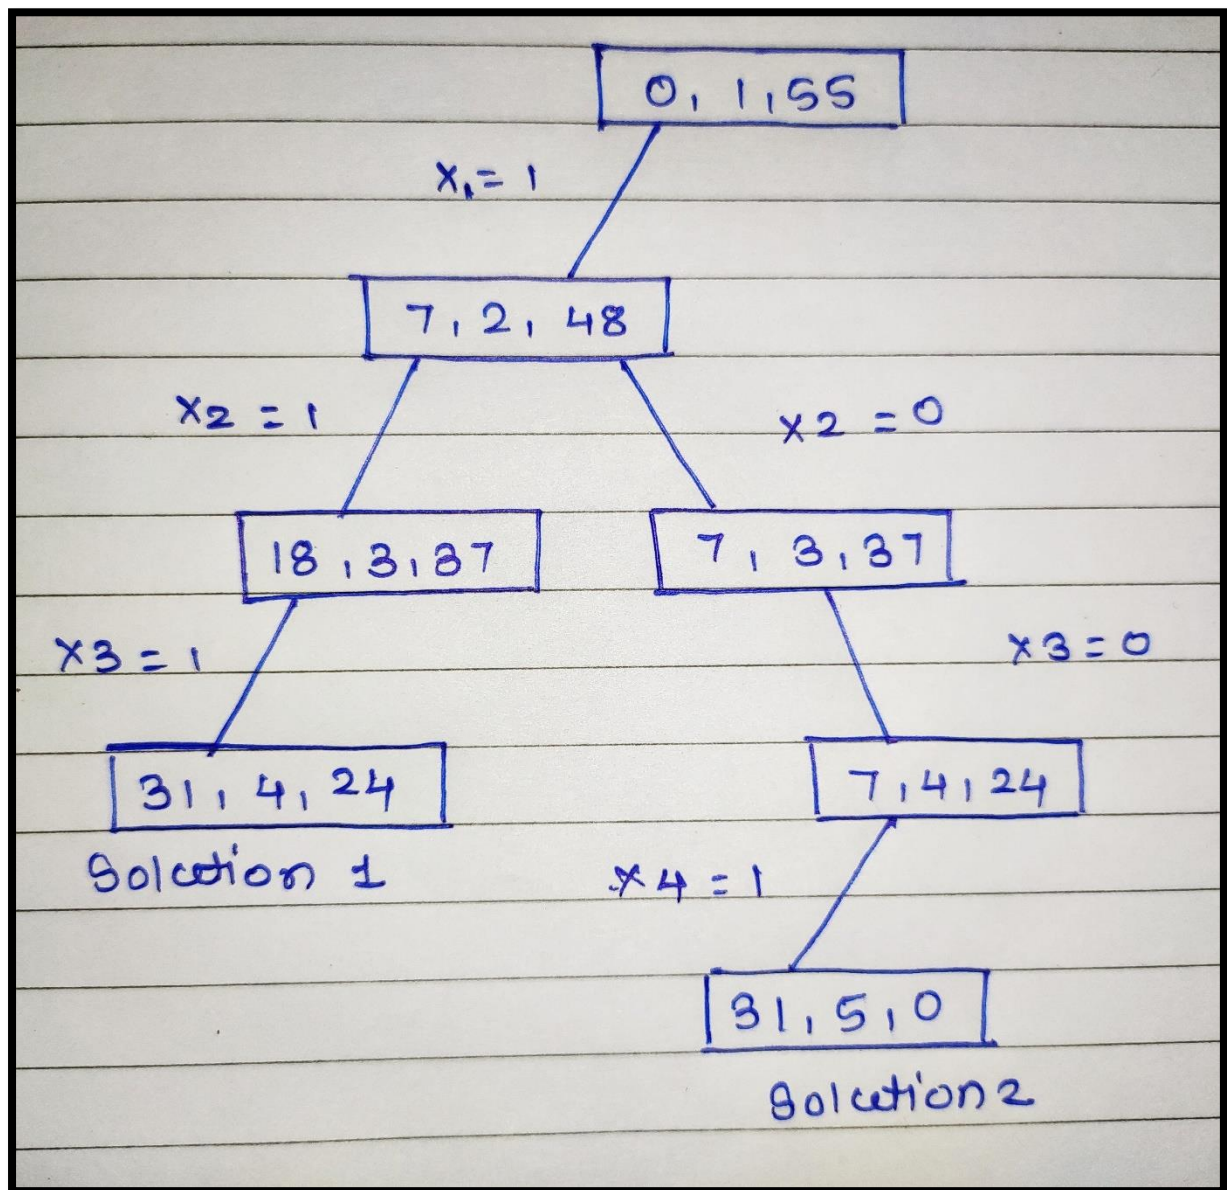 0, 1, 55
x1 = 1
7, 2, 48
x2 = 1
x2 = 0
18, 3, 37
7, 3, 37
x3 = 1
x3 = 0
31, 4, 24
7, 4, 24
Solution 1
x4 = 1
31, 5, 0
Solution 2